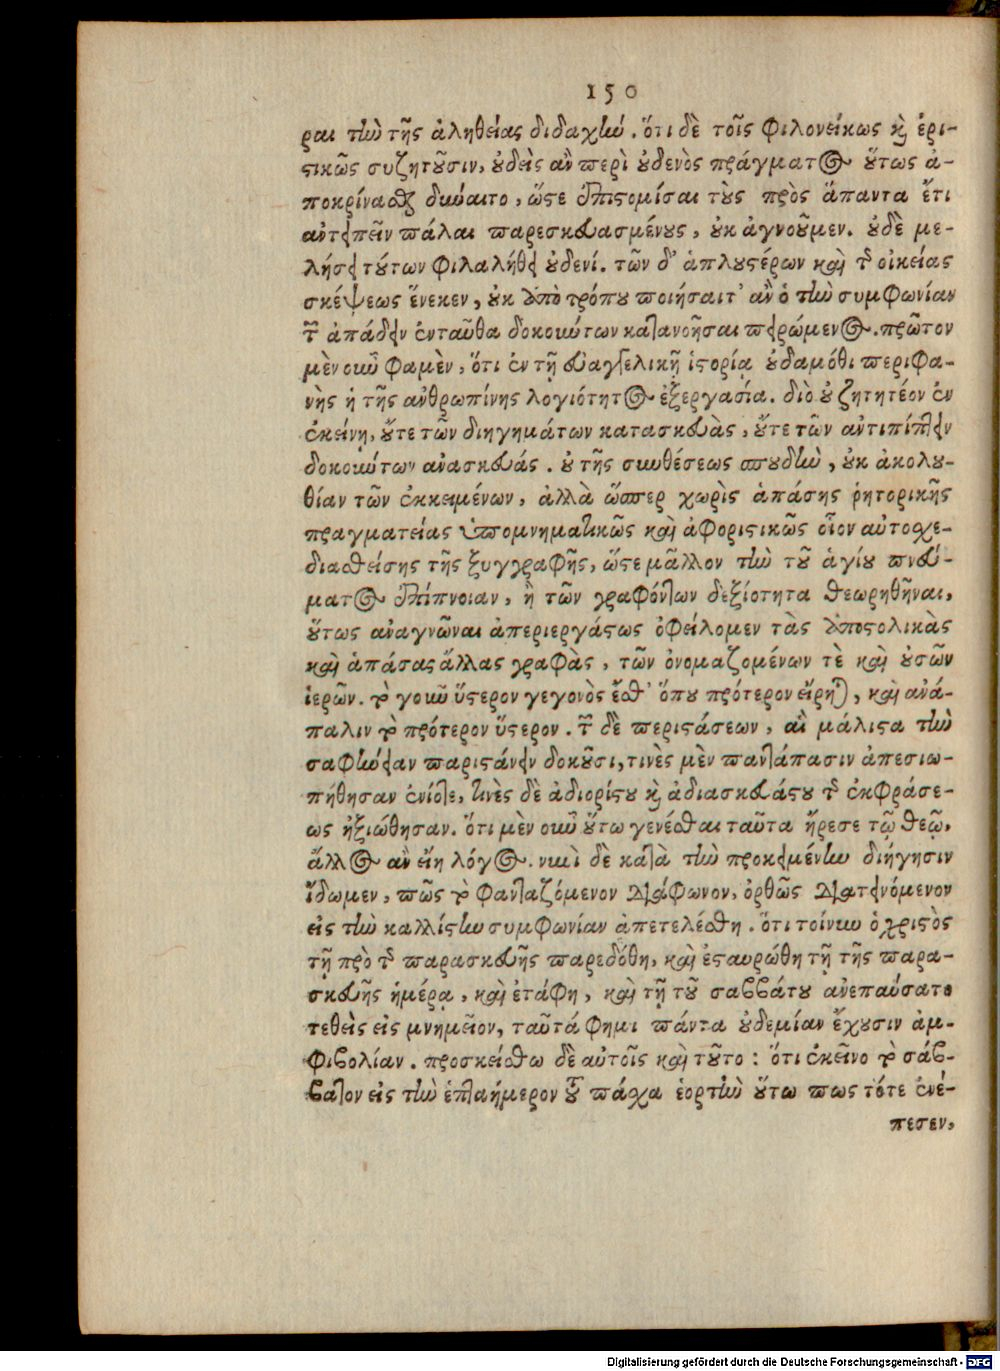 150
ραι τὴν τῆς ἀληθείας διδαχήν. ὅτι δὲ τοῖς φιλονείκως καὶ ἐρι-
στικῶς συζητοῦσιν, οὐδεὶς ἂν περὶ οὐδενὸς πράγματος οὕτως ἀ-
ποκρίνασθαι δύναιτο, ὥστε ἐπιστομίσαι τοὺς πρὸς ἅπαντα ἔτι
ἀντειπεῖν πάλαι παρεσκευασμένους, οὐκ ἀγνοοῦμεν. οὐδὲ με-
λήσει τούτων φιλαλήθει οὐδενί. τῶν δ' ἁπλουστέρων καὶ τῆς οἰκείας
σκέψεως ἕνεκεν, οὐκ ἀπὸ τρόπου ποιήσαιτ' ἂν ὁ τὴν συμφωνίαν
τῶν ἀπάδειν ἐνταῦθα δοκούντων κατανοῆσαι πειρώμενος. πρῶτον
μὲν οὖν φαμὲν, ὅτι ἐν τῇ εὐαγγελικῇ ἱστορίᾳ οὐδαμόθι περιφα-
νὴς ἡ τῆς ἀνθρωπίνης λογιότητος ἐξεργασία. διὸ οὐ ζητητέον ἐν
ἐκείνῃ, οὔτε τῶν διηγημάτων κατασκευὰς, οὔτε τῶν ἀντιπίπτειν
δοκούντων ἀνασκευάς. οὐ τῆς συνθέσεως σπουδὴν, οὐκ ἀκολου-
θίαν τῶν ἐκκειμένων, ἀλλὰ ὥσπερ χωρὶς ἁπάσης ῥητορικῆς
πραγματείας ὑπομνηματικῶς καὶ ἀφοριστικῶς οἷον αὐτοσχε-
διασθείσης τῆς ξυγγραφῆς, ὥστε μᾶλλον τὴν τοῦ ἁγίου πνεύ-
ματος ἐπίπνοιαν, ἢ τῶν γραφόντων δεξιότητα θεωρηθῆναι,
οὕτως ἀναγνῶναι ἀπεριεργάστως ὀφείλομεν τὰς ἀποστολικὰς
καὶ ἁπάσας ἄλλας γραφὰς, τῶν ὀνομαζομένων τὲ καὶ οὐσῶν
ἱερῶν. τὸ γοῦν ὕστερον γεγονὸς ἔσθ' ὅπου πρότερον εἴρηται, καὶ ἀνά-
παλιν τὸ πρότερον ὕστερον. τῶν δὲ περιστάσεων, αἳ μάλιστα τὴν
σαφήνειαν παριστάνειν δοκοῦσι, τινὲς μὲν παντάπασιν ἀπεσιω-
πήθησαν ἐνίοτε, τινὲς δὲ ἀδιορίστου καὶ ἀδιασκευάστου τῆς ἐκφράσε-
ως ἠξιώθησαν. ὅτι μὲν οὖν οὕτω γενέσθαι ταῦτα ἤρεσε τῷ θεῷ,
ἄλλος ἂν εἴη λόγος. νυνὶ δὲ κατὰ τὴν προκειμένην διήγησιν
ἴδωμεν, πῶς τὸ φανταζόμενον διάφωνον, ὀρθῶς διατεινόμενον
εἰς τὴν καλλίστην συμφωνίαν ἀπετελέσθη. ὅτι τοίνυν ὁ χριστὸς
τῇ πρὸ τῆς παρασκευῆς παρεδόθη, καὶ ἐσταυρώθη τῇ τῆς παρα-
σκευῆς ἡμέρᾳ, καὶ ἐτάφη, καὶ τῇ τοῦ σαββάτου ἀνεπαύσατο
τεθεὶς εἰς μνημεῖον, ταῦτά φημι πάντα οὐδεμίαν ἔχουσιν ἀμ-
φιβολίαν. προσκείσθω δὲ αὐτοῖς καὶ τοῦτο: ὅτι ἐκεῖνο τὸ σάβ-
βατον εἰς τὴν ἑπταήμερον τοῦ πάσχα ἑορτὴν οὕτω πως τότε ἐνέ-
πεσεν,
Digitalisierung gefördert durch die Deutsche Forschungsgemeinschaft - DFG